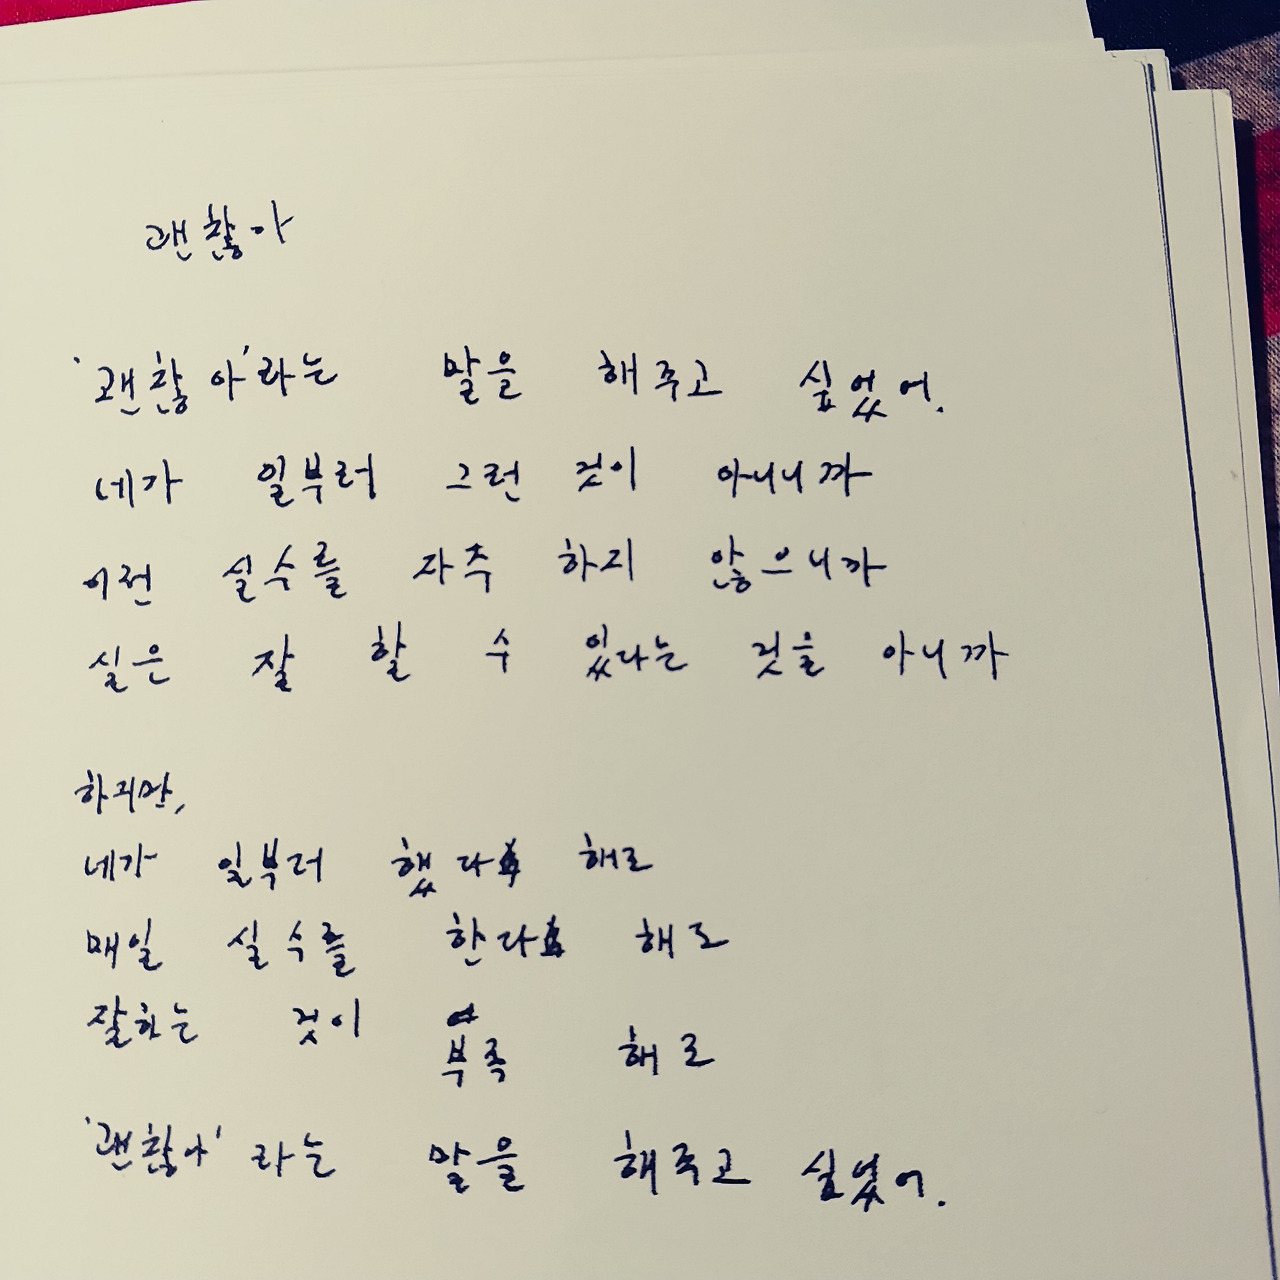 괜찮아
'괜찮아'라는 말을 해주고 싶었어.
네가 일부러 그런 것이 아니니까
이런 실수를 자주 하지 않으니까
실은 잘 할 수 있다는 것을 아니까
하지만,
네가 일부러 했다 해도
매일 실수를 한다 해도
잘하는 것이 부족 해도
'괜찮아' 라는 말을 해주고 싶었어.